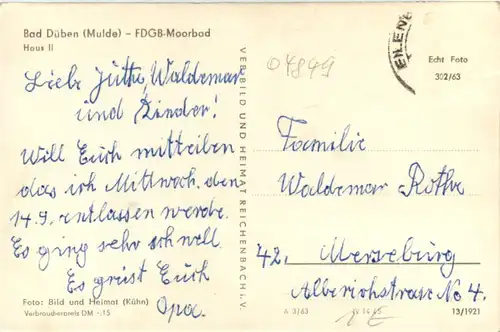 Bad Düben (Mulde) – FDGB-Moorbad
Haus II
Liebe Jutta, Waldemar
und Kinder!
Will Euch mitteilen
das ich Mittwoch den
14.9. entlassen werde.
Es ging sehr schnell
Es grüst Euch
Opa.
Foto: Bild und Heimat (Kühn)
Verbraucherpreis DM -.15
VERLAG BILD UND HEIMAT REICHENBACH i. V.
04849
EILENB
Echt Foto
302/63
Familie
Waldemar Rothe
42. Merseburg
Alberichstrase No 4.
A 3/63 IV 14 45 13/1921